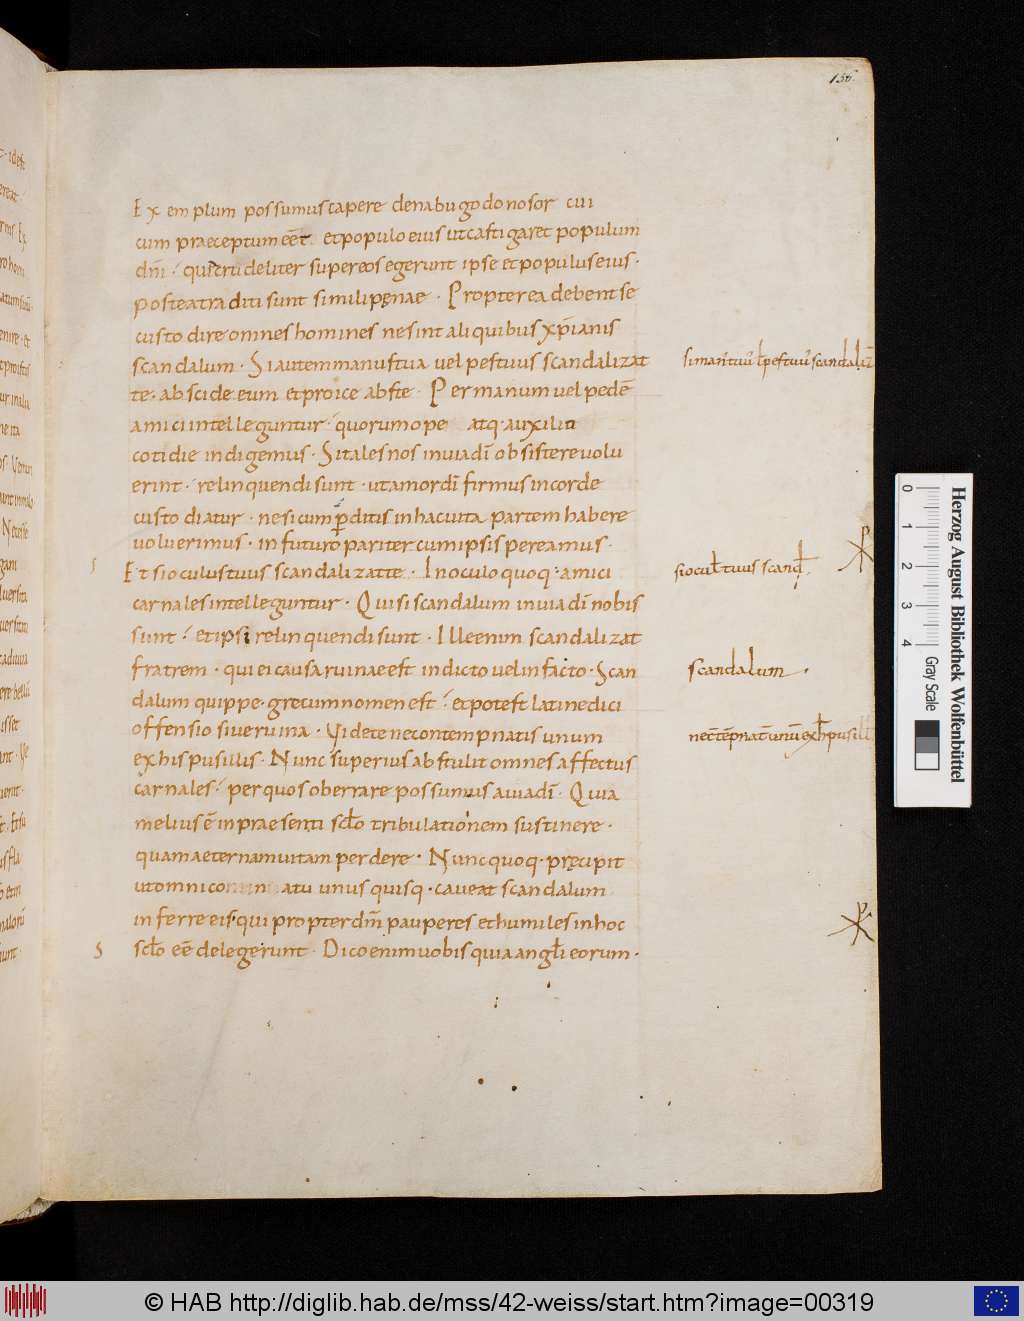 156
Ex emplum possumus capere denabugodonosor cui
cum praeceptum eēt. et populo eius ut castigaret populum
dm̄. qui crudeliter super eos egerunt ipse et populus eius.
postea traditi sunt simili pęnae. Propterea debent se
custodire omnes homines ne sint aliquibus xp̄ianis
scandalum. Si autem manus tua vel pes tuus scandalizat
te. abscide eum et proice abs te. Per manum vel pedē
amici intelleguntur. quorum ope atq. auxilia
cotidie indigemus. Si tales nos in uia dī obsistere uolu
erint. relinquendi sunt. ut amor dī firmus in corde
custodiatur. ne si cum p̱ditis in hac uita partem habere
uoluerimus. in futuro pariter cum ipsis pereamus.
Et si oculus tuus scandalizat te. In oculo quoq. amici
carnales intelleguntur. Qui si scandalum in uia dī nobis
sunt. et ipsi relinquendi sunt. Ille enim scandalizat
fratrem. qui ei causa ruinae est in dicto uel in facto. Scan
dalum quippe. grecum nomen est. et potest latine dici
offensio siue ruina. Videte ne contempnatis unum
ex his pusillis. Nunc superius abstulit omnes affectus
carnales. per quos oberrare possumus a uia dī. Quia
melius ē in praesenti scl̄o tribulationem sustinere.
quam aeternam uitam perdere. Nunc quoq. pręcipit
ut omni co atu unus quisq. caueat scandalum
inferre eis. qui propter dm̄ pauperes et humiles in hoc
scl̄o eē delegerunt. Dico enim uobis quia angl̄i eorum.
si man̄ tuu' l̄ pes tuu' scandaliz̄
si ocul̄ tuus scand̄
scandalum.
ne c̄tēpnat' unū ex h' pusill
0 1 2 3 4
Gray Scale
Herzog August Bibliothek Wolfenbüttel
© HAB http://diglib.hab.de/mss/42-weiss/start.htm?image=00319